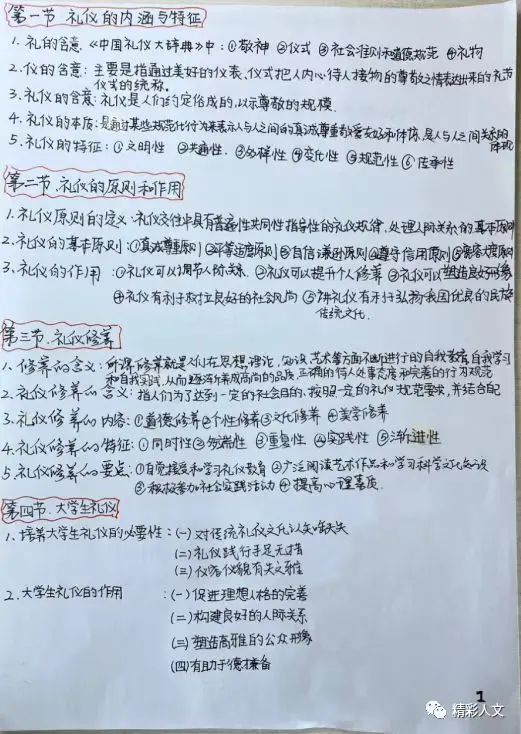 第一节 礼仪的内涵与特征
1.礼的含意.《中国礼仪大辞典》中：①敬神 ②仪式 ③社会准则和道德规范 ④礼物
2.仪的含意：主要是指通过美好的仪表、仪式把人内心待人接物的尊敬之情表达出来的礼节
仪式的统称.
3.礼仪的含意：礼仪是人们约定俗成的，以示尊敬的规模.
4.礼仪的本质：是通过某些规范化行为来表示人与人之间的真诚尊重敬爱友好和体谅，是人与人之间关系的体现
5.礼仪的特征：①文明性 ②共通性. ③多样性 ④变化性 ⑤规范性 ⑥传承性
第二节.礼仪的原则和作用
1.礼仪原则的定义：礼仪交往中具有普遍性共同性指导性的礼仪规律，处理人际关系的基本原则
2.礼仪的基本原则：①真诚尊重原则②平等适度原则③自信谦逊原则④遵守信用原则⑤宽容大度原则
3.礼仪的作用：①礼仪可以调节人际关系. ②礼仪可以提升个人修养 ③礼仪可以塑造良好形象
④礼仪有利于树立良好的社会风尚 ⑤讲礼仪有利于弘扬我国优良的民族
传统文化.
第三节.礼仪修养
1.修养的含义：所谓修养就是人们在思想，理论，知识，艺术等方面不断进行的自我教育，自我学习
和自我实践，从而逐渐养成高尚的品质，正确的待人处事态度和完善的行为规范
2.礼仪修养的含义：指人们为了达到一定的社会目的，按照一定的礼仪规范要求，并结合
3.礼仪修养的内容：①道德修养②个性修养③文化修养 ④美学修养
4.礼仪修养的特征：①同时性②多端性 ③重复性 ④实践性 ⑤渐进性
5.礼仪修养的要点：①自觉接受和学习礼仪教育 ②广泛阅读艺术作品和学习科学文化知识
③积极参加社公实践活动 ④提高心理素质.
第四节.大学生礼仪
1.培养大学生礼仪的必要性：(一)对传统礼仪文化认知缺失
(二)礼仪践行手足无措
(三)仪容仪貌有失文雅
2.大学生礼仪的作用：(一)促进理想人格的完善
(二)构建良好的人际关系
(三)塑造高雅的公众形象
(四)有助于德才兼备
1
精彩人文